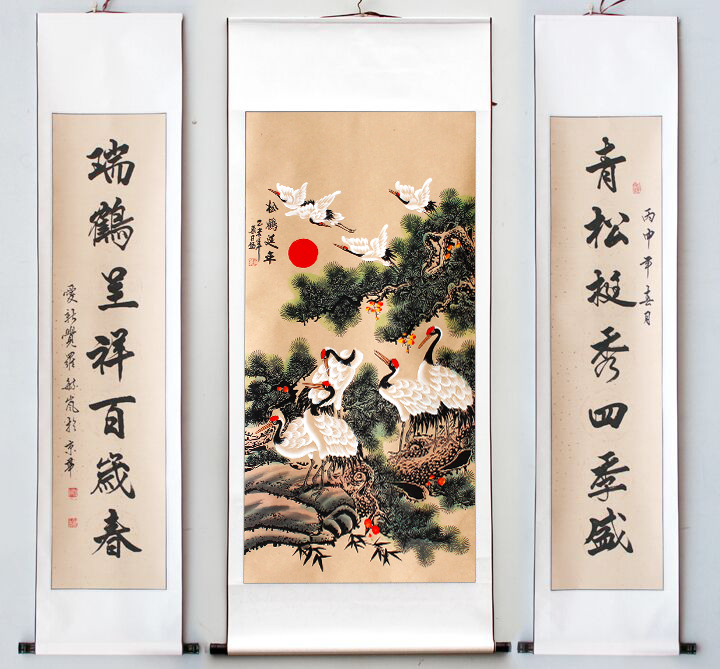 青松挺秀四季盛
丙申年春月
松鶴延年
瑞鶴呈祥百歲春
愛新覺羅
於京華